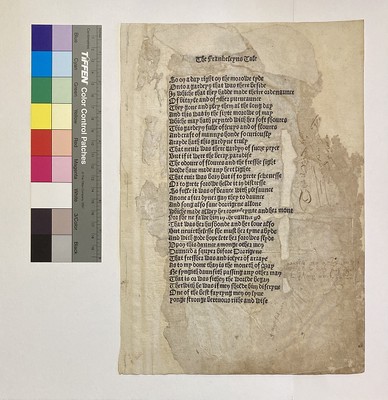 TIFFEN Color Control Patches
Blue
The Frankeleyns Tale
So on a day right on the morowe tyde
Unto a gardeyn that was there beside
In whiche that they hadde made theire ordenaunce
Of vitayle and of other purveaunce
They gone and pley them al the long day
And this was on the sixte morowe of may
Which may hath peynted with his soft shoures
This gardeyn fulle of levys and of floures
And craft of mannys honde so curiously
Arayde hath this gardyn truly
That never was there gardeyn of suche pryce
But if it were the veray paradise
The odoure of floures and the fresshe sight
Wolde have made any hert lighte
That ever was born but if to grete sekenesse
Or to grete sorowe helde it in distresse
So fulle it was of beaute with plesaunce
Aftir dyner gan they to daunce
And song also save dorigene allone
Whiche made alwey her compleynt and her mone
For she ne sawe him on the daunce go
That was her husbonde and her love also
But nevertheless she must her tyme abyde
And with gode hope lete her sorowe slyde
Upon this daunce amonge other men
Daunced a squyer before Dorigene
That fressher was and iolyer of araye
As to my dome than is the moneth of may
He syngeth daunseth passing any other man
That is or was sithen the worlde began
Therwith he was if men sholde him discryve
One of the best faryng men on lyve
Yonge stronge vertuous riche and wise